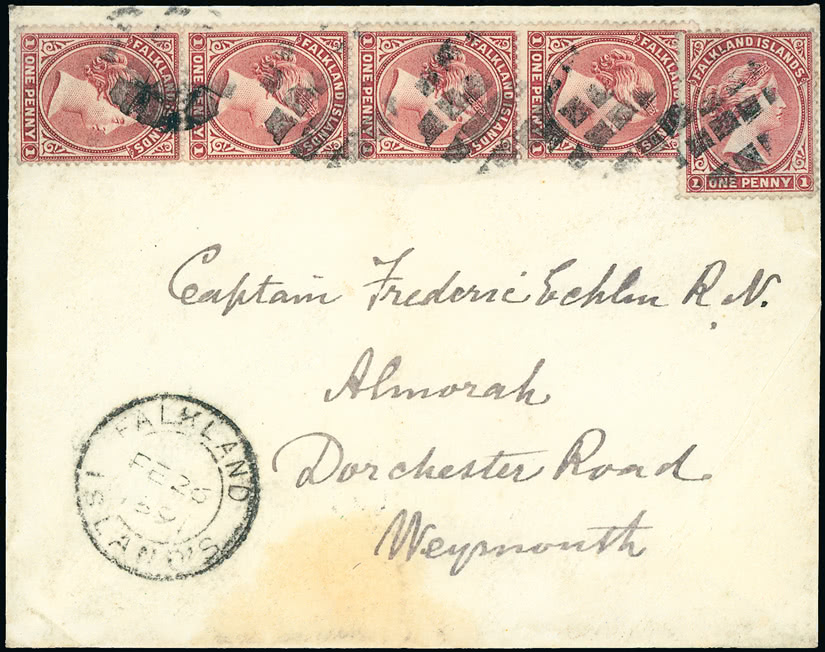 1 FALKLAND ISLANDS 1
ONE PENNY
1 FALKLAND ISLANDS 1
ONE PENNY
1 FALKLAND ISLANDS 1
ONE PENNY
1 FALKLAND ISLANDS 1
ONE PENNY
FALKLAND ISLANDS
1 ONE PENNY 1
Captain Frederic Echlin R.N.
Almorah
Dorchester Road
Weymouth
FALKLAND ISLANDS
FE 26
91